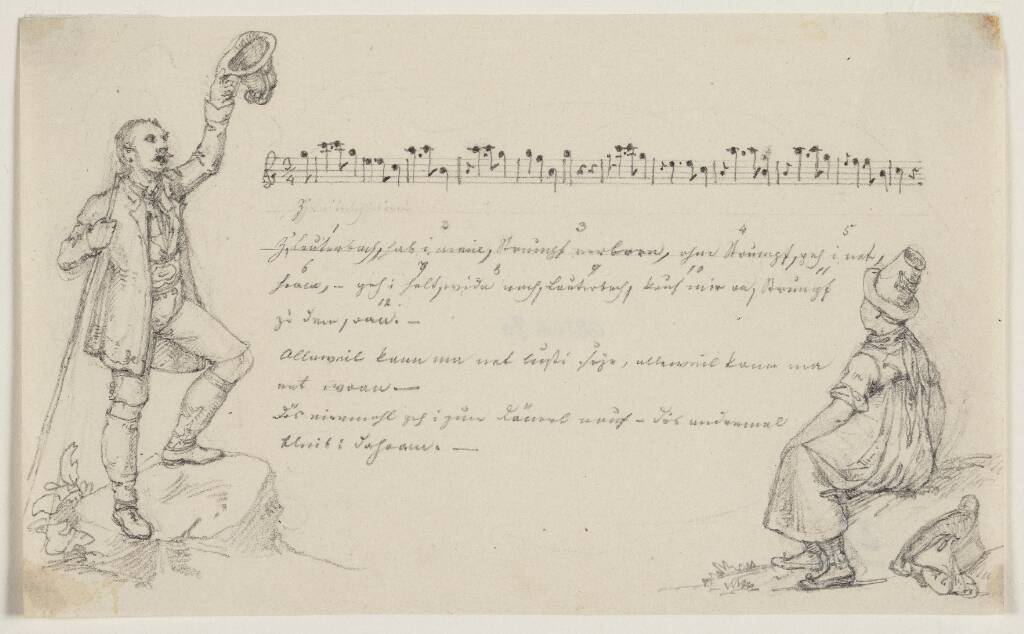 3/4
2 3 4 5
Z'Lauterbach, hab i mein, Strumpf verlorn, ohne Strumpf, geh i net,
6 7 8 9 10 11
haam, – geh i halt, wida nach, Lauterbach, kauf mir an, Strumpf
12
zu dem, oan. –
Alleweil kann ma net lusti seyn, alleweil kann ma
net woan. —
Dös einemohl geh i zum nauf – dös andremal
bleib i dahoam. —